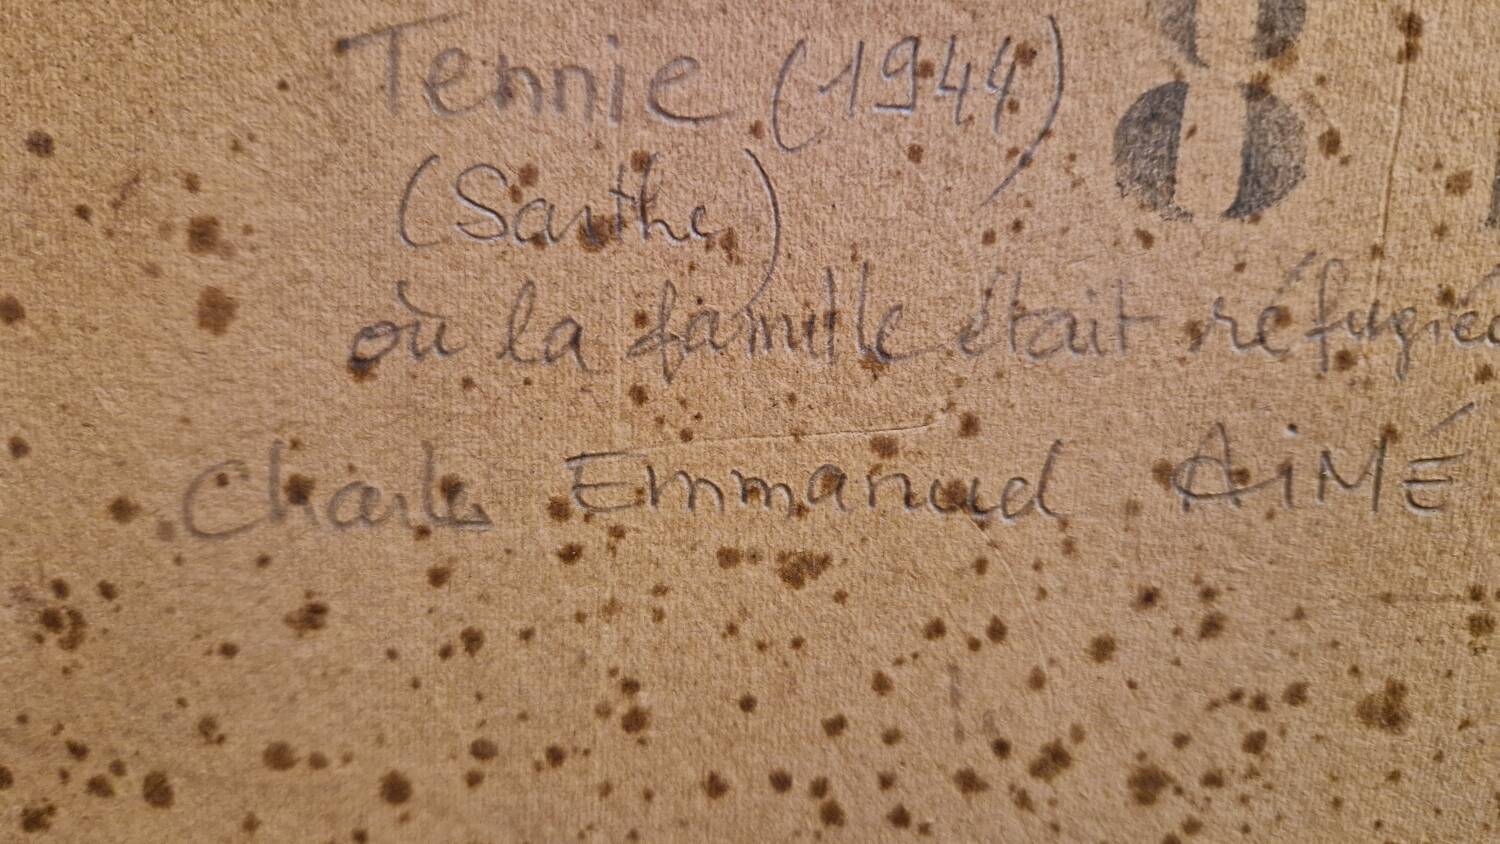 Tennie (1944) 8
(Sarthe)
où la famille était réfugiée
Charles Emmanuel AiMÉ